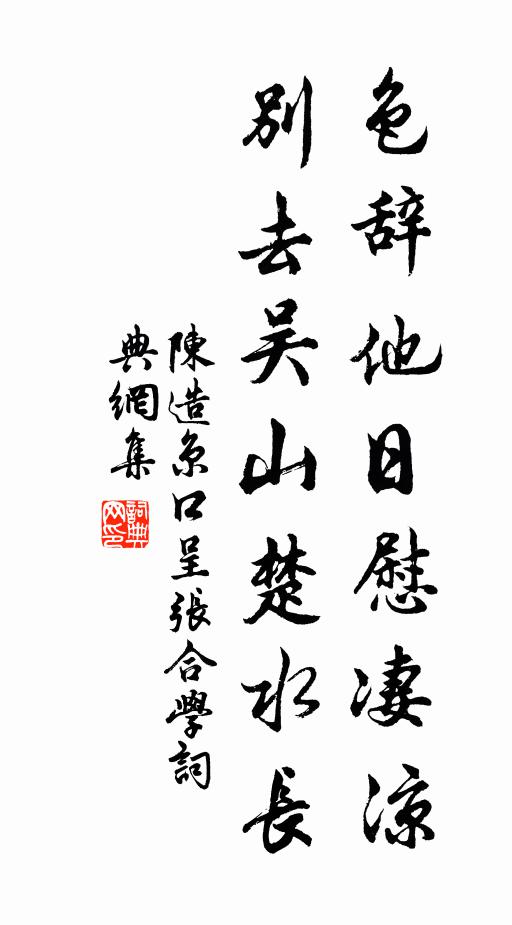 色辞他日慰凄涼
別去吴山楚水長
陳造京口呈張合學詞
典網集
詞典网印